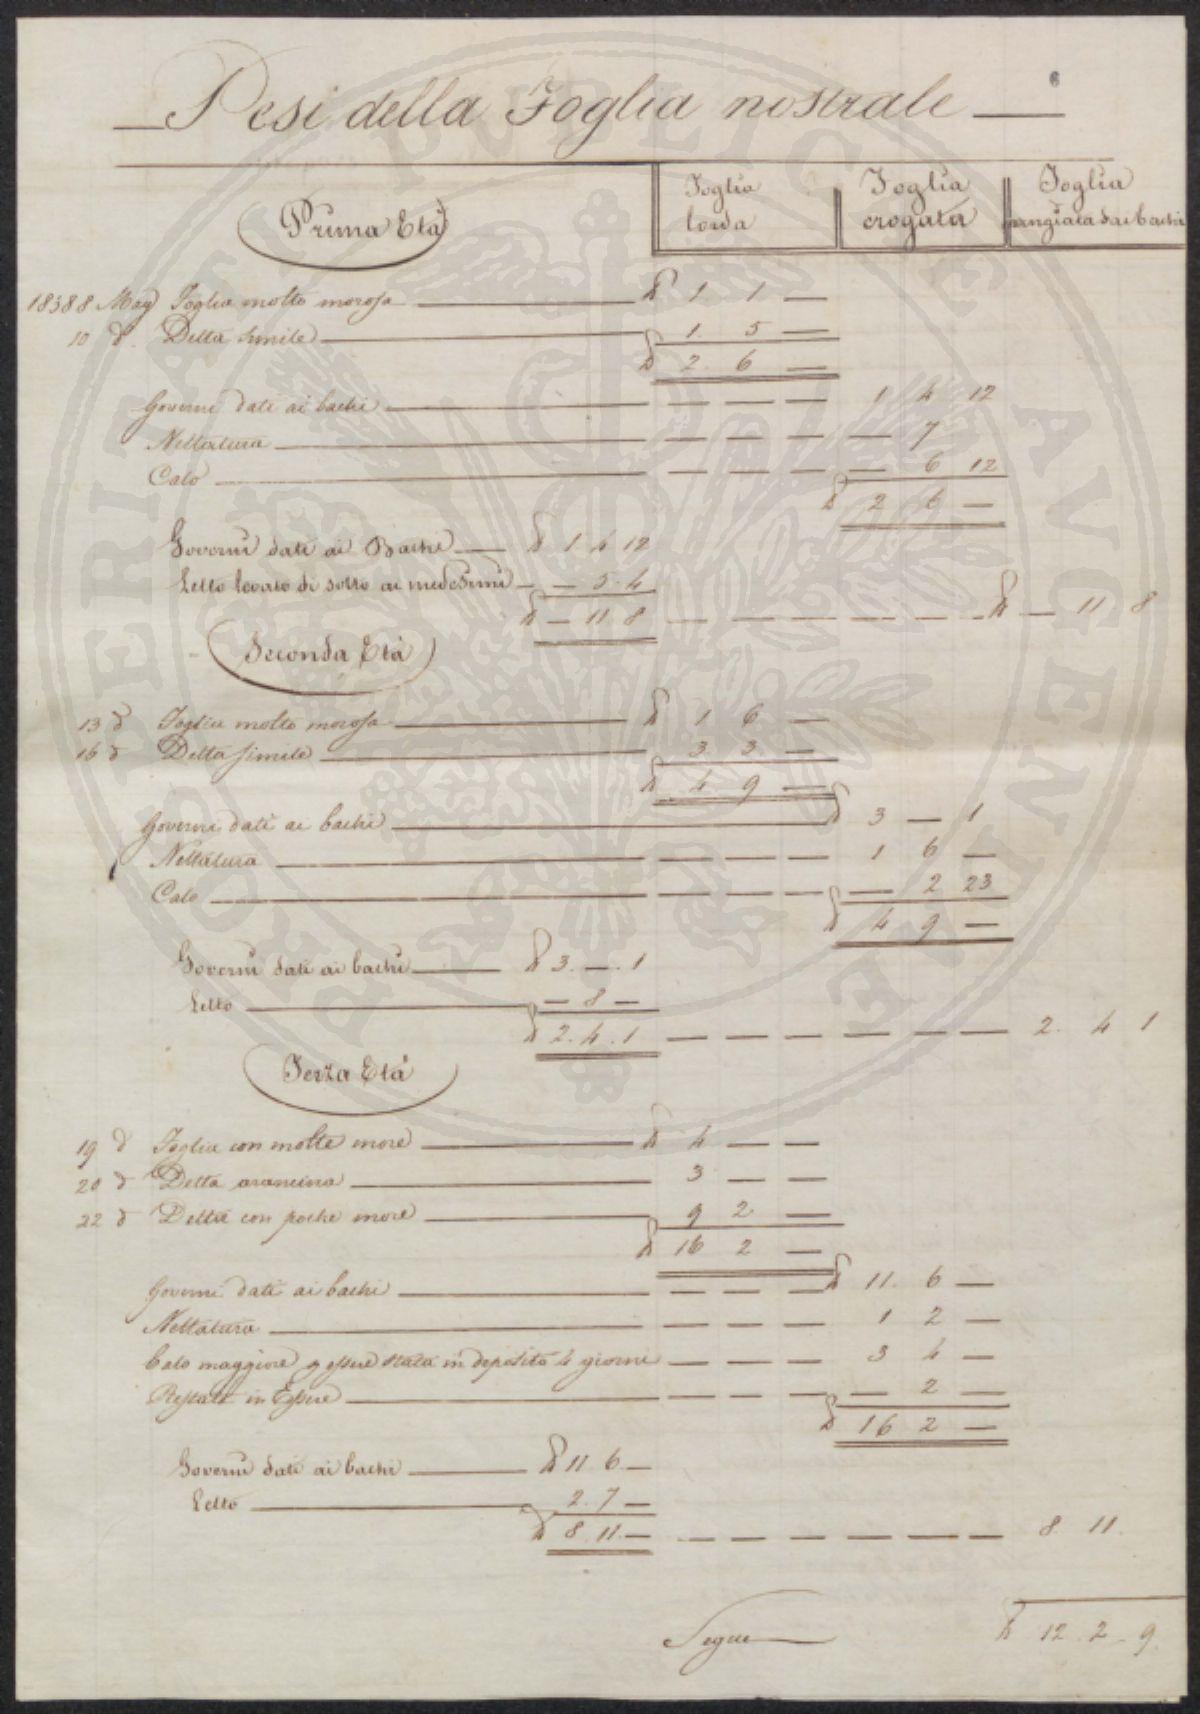 6
Pesi della Foglia nostrale
Foglia lorda
Foglia erogata
Foglia mangiata dai bachi
Prima Età
1838 8 Mag Foglia molto morosa ₶ 1 1 —
10 d. Detta simile 1. 5 —
₶ 2. 6 —
Governi dati ai bachi — — — 1 4 12
Nettatura — — — — 7
Calo — — — — 6 12
₶ 2 6 —
Governi dati ai Bachi ₶ 1 4 12
Letto levato di sotto ai medesimi — 5. 4
₶ — 11 8 — — — — — — ₶ — 11 8
Seconda Età
13 d Foglia molto morosa ₶ 1 6 —
16 d Detta simile 3 3 —
₶ 4 9 —
Governi dati ai bachi ₶ 3 — 1
Nettatura — — — 1 6 —
Calo — — — — 2 23
₶ 4 9 —
Governi dati ai bachi ₶ 3. — . 1
Letto — 8 —
₶ 2. 4. 1 — — — — — — 2. 4 1
Terza Età
19 d Foglia con molte more ₶ 4 — —
20 d Detta arancina 3 — —
22 d Detta con poche more 9 2 —
₶ 16 2 —
Governi dati ai bachi — — — ₶ 11. 6 —
Nettatura — — — 1 2 —
Calo maggiore p essere stata in deposito 4 giorni — — — 3 4 —
Restata in Essere — — — — 2 —
₶ 16 2 —
Governi dati ai bachi ₶ 11 6 —
Letto 2. 7 —
₶ 8. 11. — — — — — — — 8 11.
Segue ₶ 12. 2 - 9.
PROSPERITATI PUBLICAE AUGENDAE